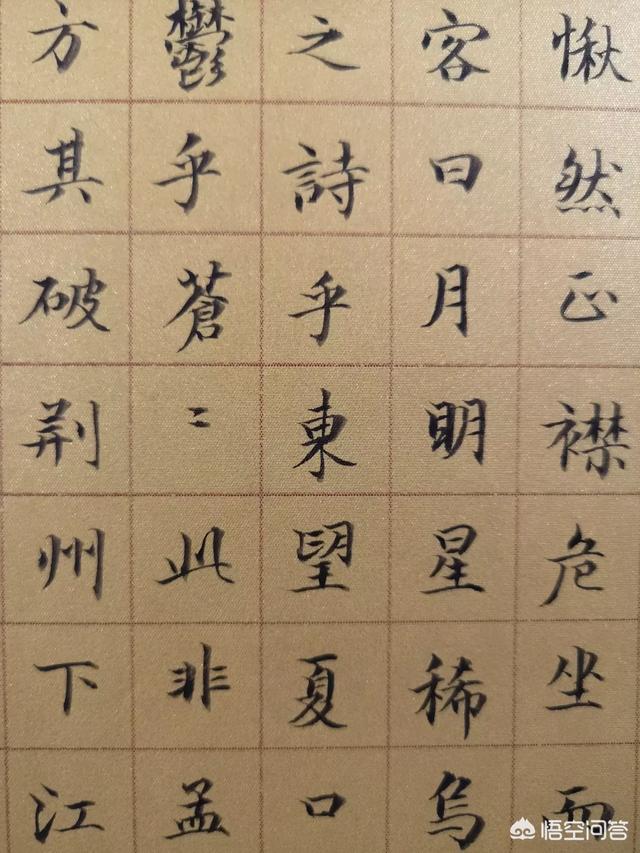 愀然正襟危坐而
客曰月明星稀烏
之詩乎東望夏口
鬱乎蒼〻此非孟
方其破荆州下江
悟空问答